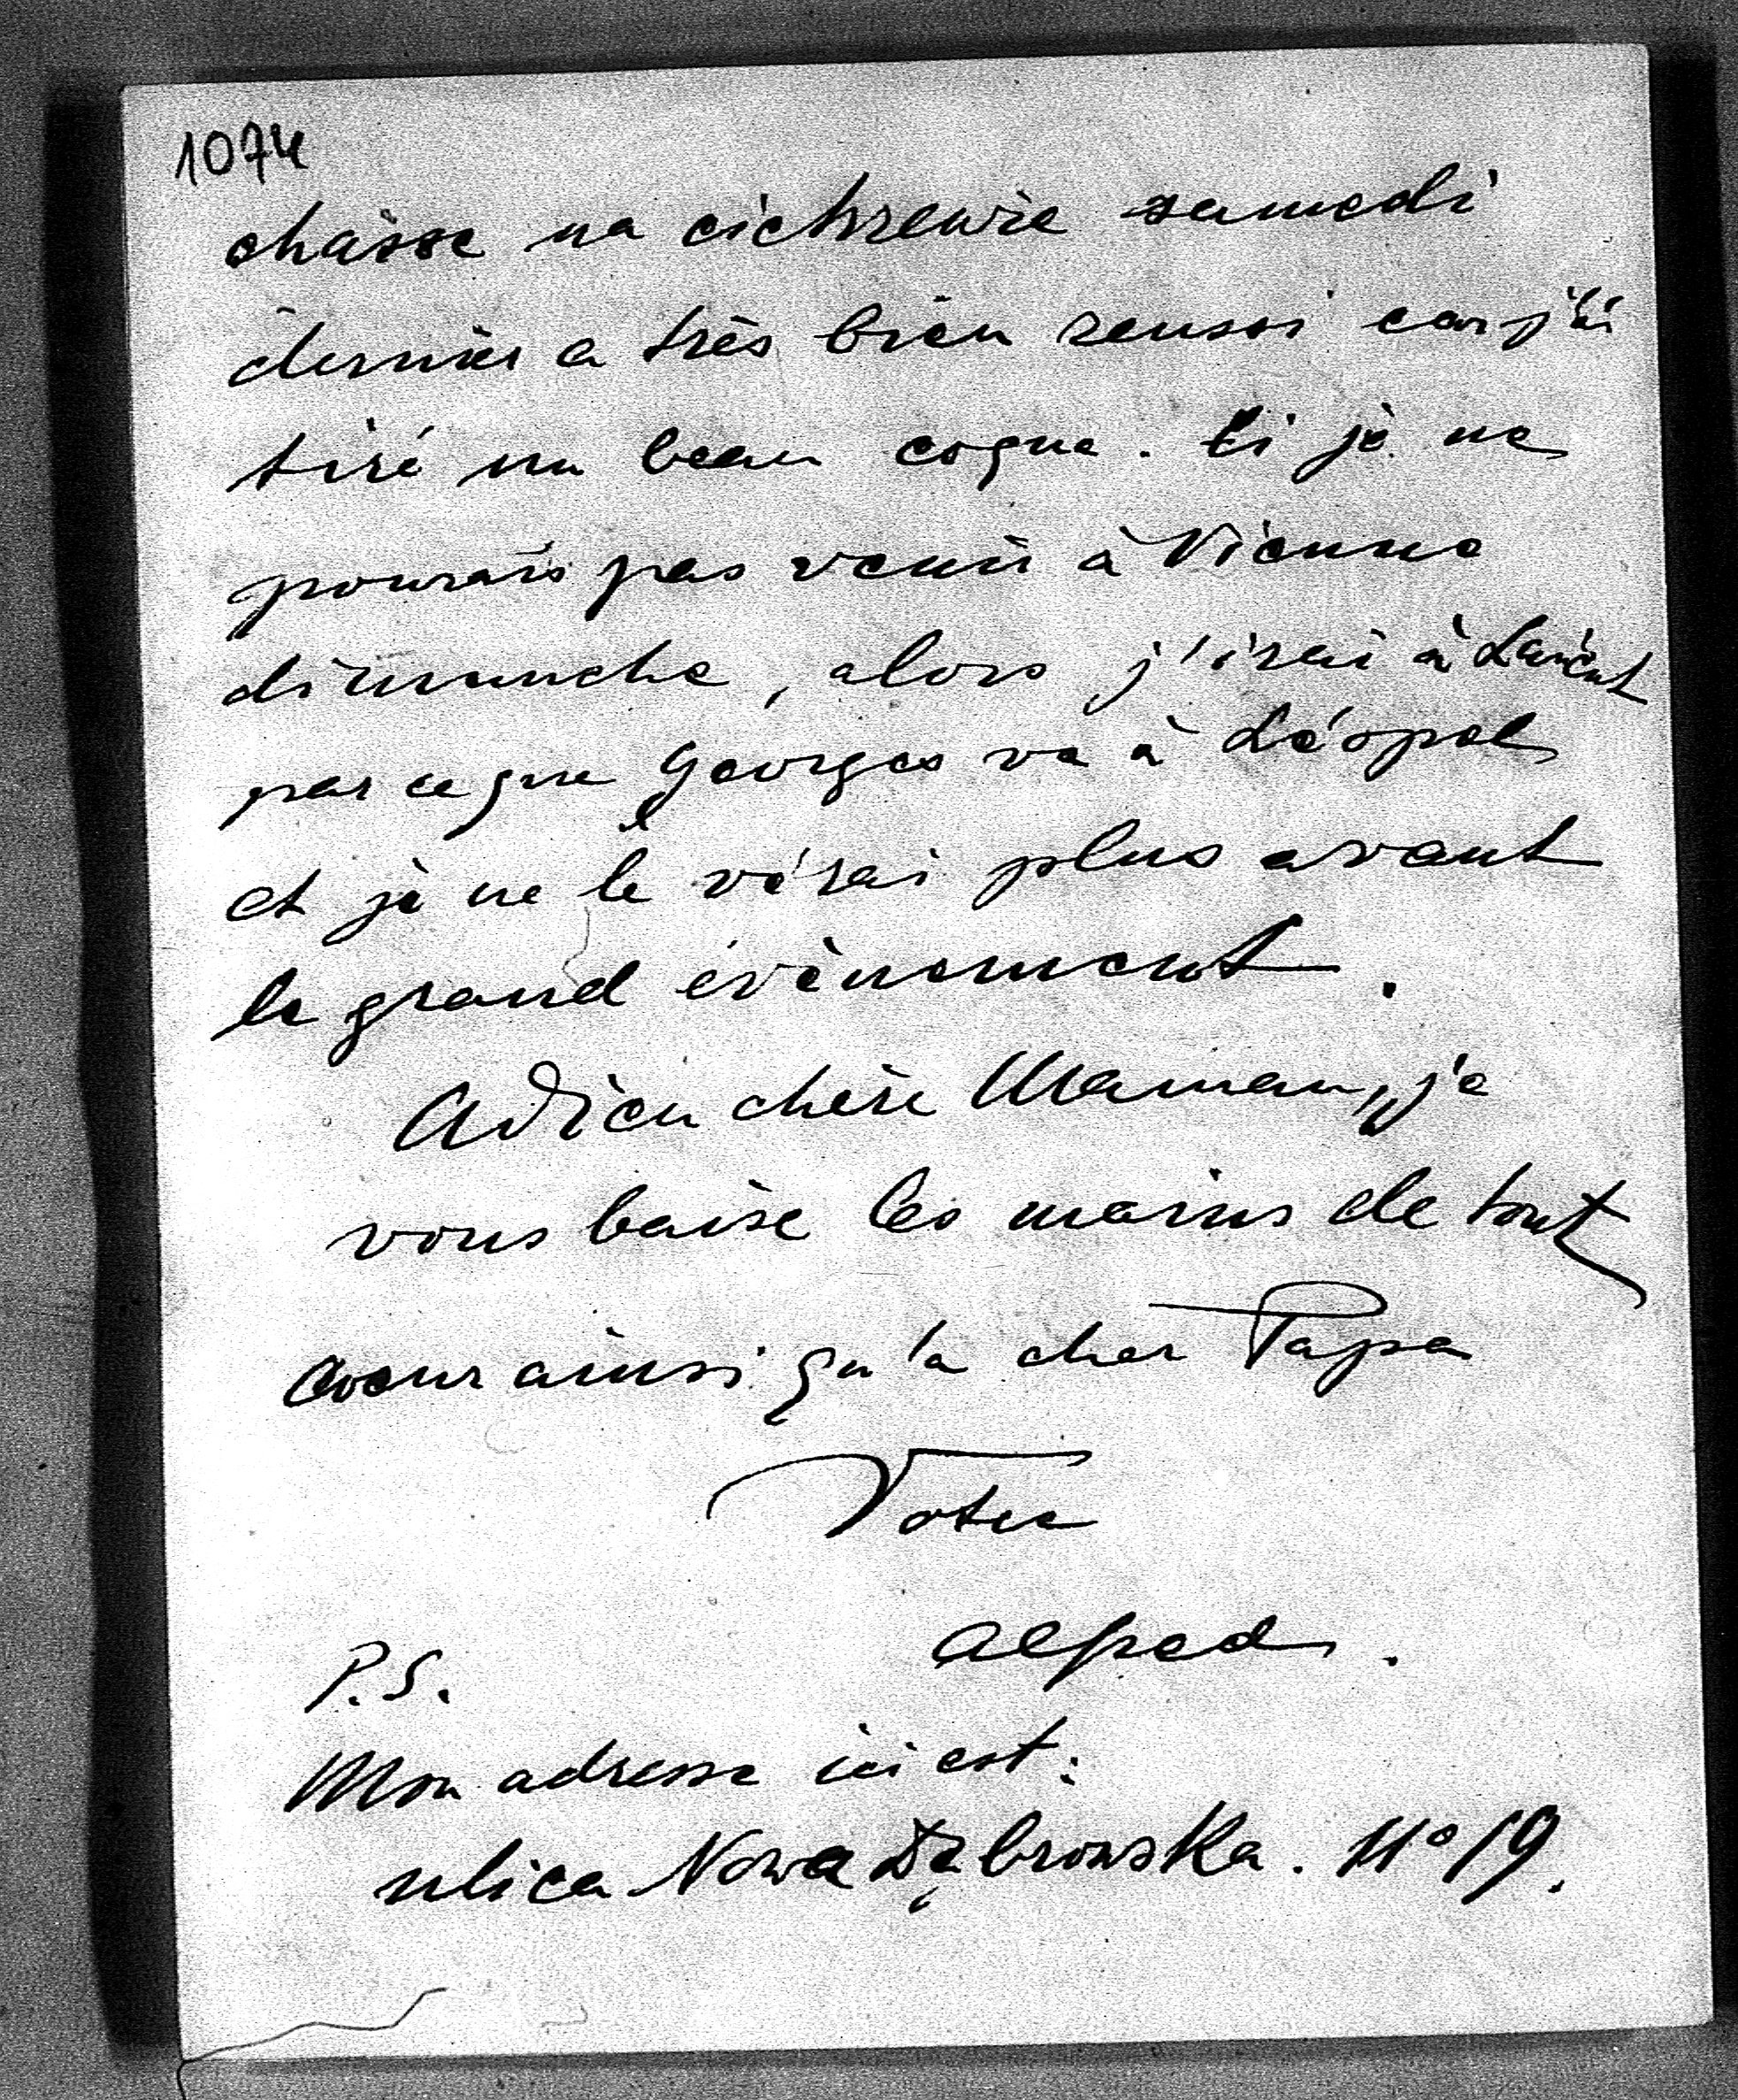 1074
chasse na cietrzewie samedi
dernier a très bien reussi car j'ai
tiré un beau coque. Si je ne
pourais pas venir à Vienne
dimmanche, alors j'irai à Lancut
par ce que Georges va à Léopol
et je ne le vérai plus avant
le grand évènement.
Adieu chère Maman, je
vous baise les mains de tout
coeur ainsi qu'a cher Papa
Votre
Alfred.
P.S.
Mon adresse ici est:
ulica Nowa Dąbrowska. No 19.